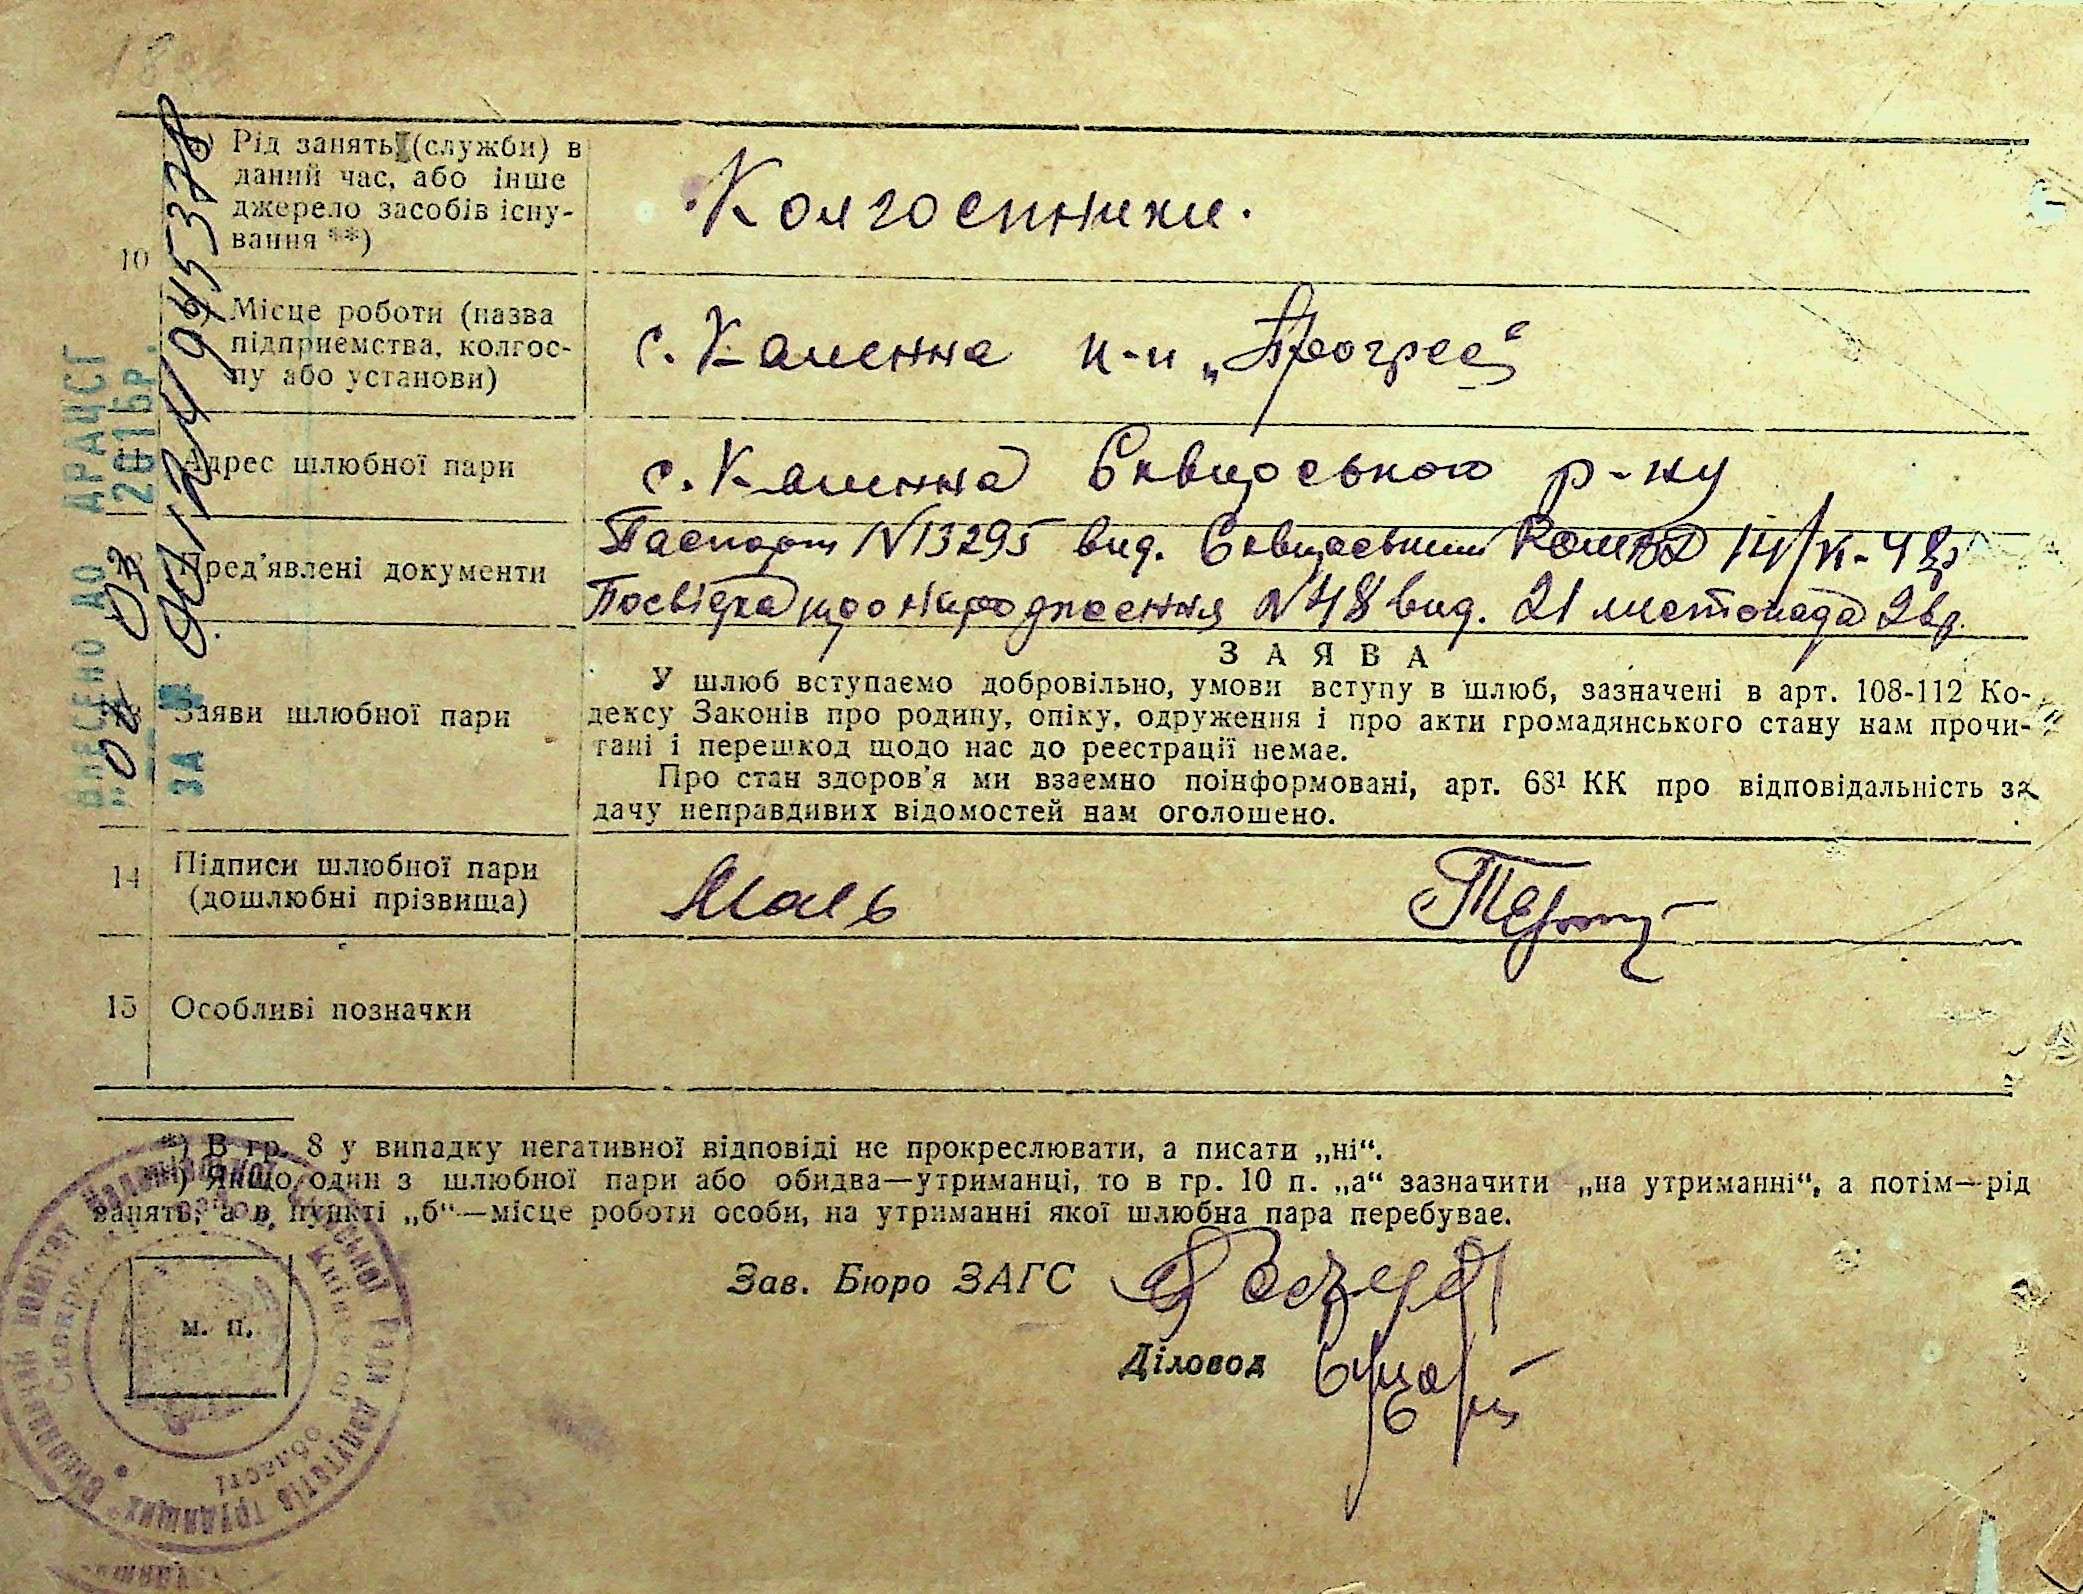 Рід занять (служби) в
даний час, або інше
джерело засобів існу-
вання **)
10
Колгоспники.
Місце роботи (назва
підприємства, колгос-
пу або установи)
с. Каменна к-п „Прогрес“
Адрес шлюбної пари
с. Каменна Сквирського р-ну
Пред’явлені документи
Паспорт N 13295 вид. Сквирським
N 48 вид. 21 листопада
Заяви шлюбної пари
ЗАЯВА
У шлюб вступаємо добровільно, умови вступу в шлюб, зазначені в арт. 108-112 Ко-
дексу Законів про родину, опіку, одруження і про акти громадянського стану нам прочи-
тані і перешкод щодо нас до реєстрації немає.
Про стан здоров’я ми взаємно поінформовані, арт. 68¹ КК про відповідальність за
дачу неправдивих відомостей нам оголошено.
14 Підписи шлюбної пари
(дошлюбні прізвища)
15 Особливі позначки
*) В гр. 8 у випадку негативної відповіді не прокреслювати, а писати „ні“.
) Якщо один з шлюбної пари або обидва—утриманці, то в гр. 10 п. „а“ зазначити „на утриманні“, а потім—рід
занять, а в пункті „б“—місце роботи особи, на утриманні якої шлюбна пара перебуває.
Зав. Бюро ЗАГС
Діловод
м. п.
ВНЕСЕНО ДО ДРАЦСГ
ЗА №